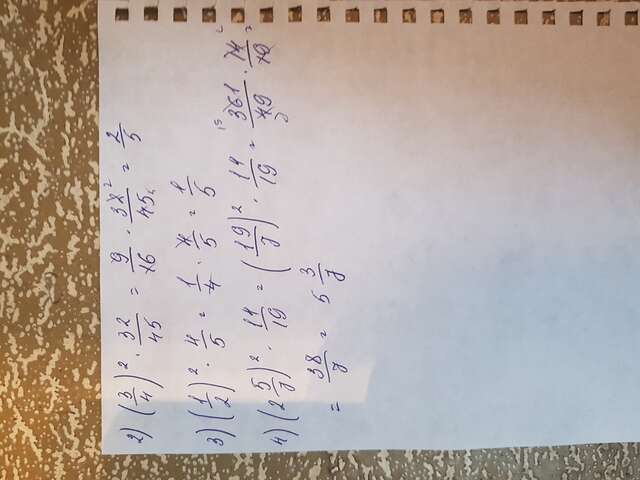 2) (3/4)² · 32/45 = 9/16 · 32²/45 = 2/5
3) (1/2)² · 4/5 = 1/4 · 4/5 = 1/5
4) (2 5/7)² · 14/19 = (19/7)² · 14/19 = 361/49 · 14²/19 =
= 38/7 = 5 3/7